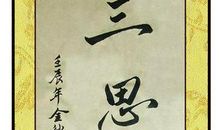 三思
壬辰年金秋